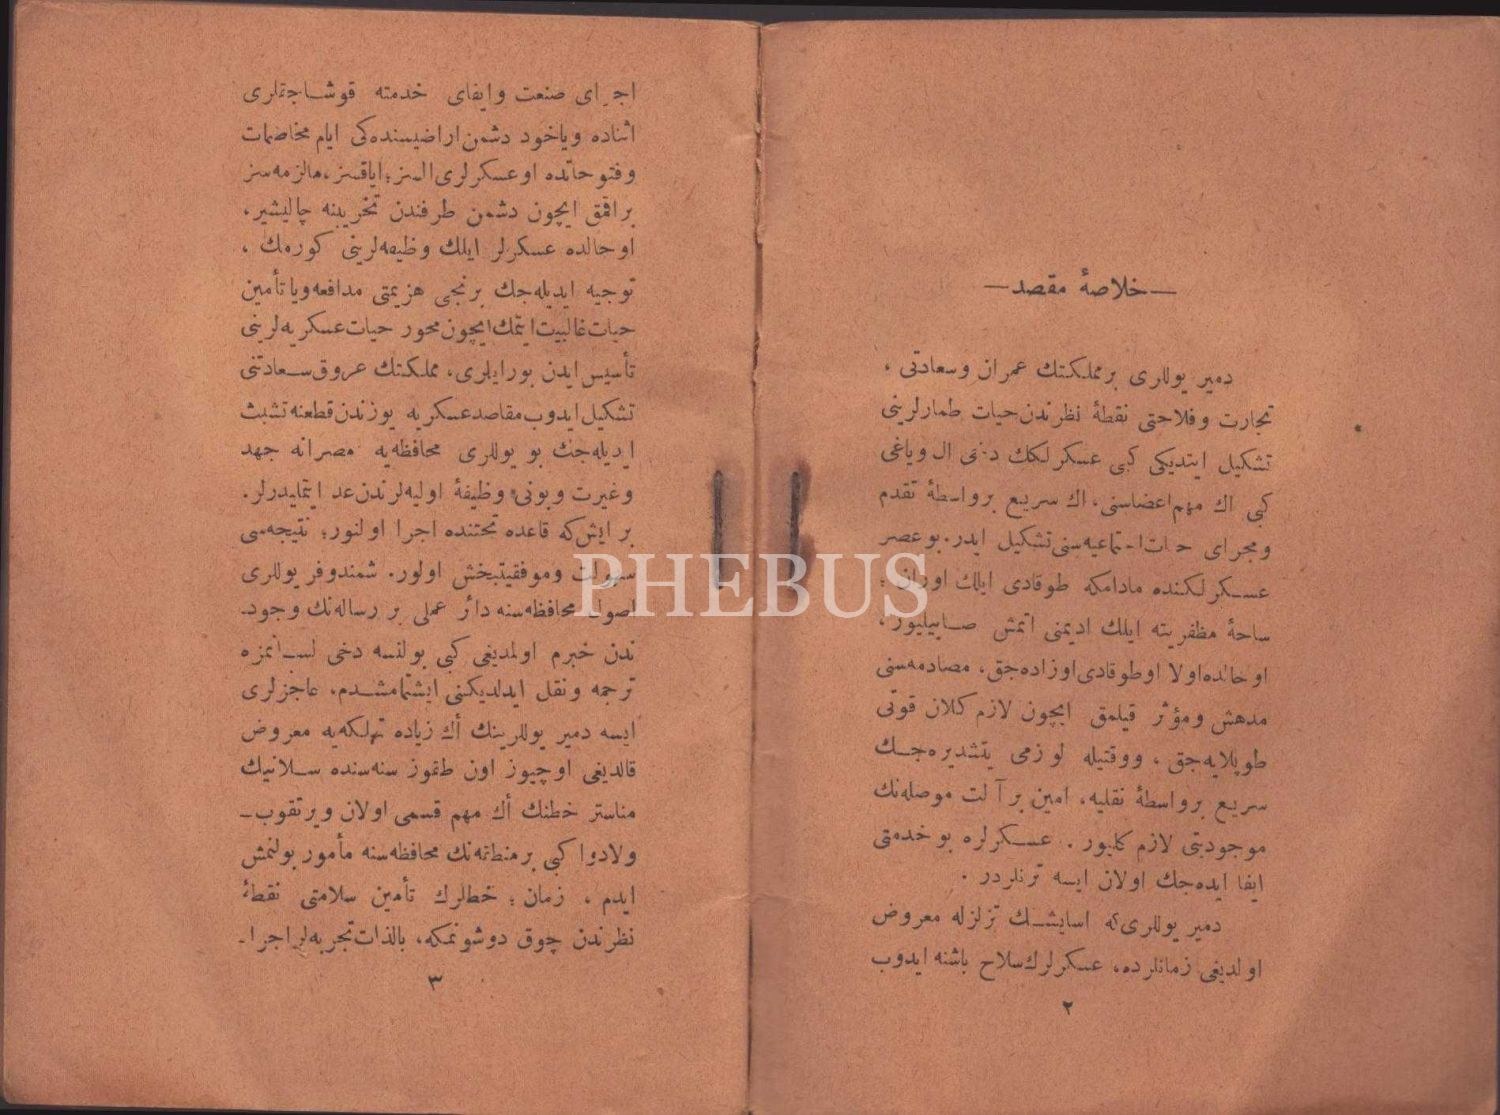 — خلاصهٔ مقصد —
دمیر یوللری بر مملکتك عمران وسعادتی ،
تجارت وفلاحتی نقطهٔ نظرندن حیات طمارلرینی
تشکیل ایتدیکی کبی عسکرلکك دخی ال ویاغی
کبی اك مهم اعضاسنی، اك سریع بر واسطهٔ تقدم
ومجرای حیات اجتماعیه‌سنی تشکیل ایدر. بو عصر
عسکرلکنده مادامکه طوقادی ایلك اوران ؛
ساحهٔ مظفریته ایلك ادیمنی اتمش صاییلیور ،
او حالده اولا او طوقادی اوزاده‌جق ، مصادمه‌سنی
مدهش ومؤثر قیلمق ایچون لازم کلان قوتی
طوپلایه‌جق ، ووقتیله لوزمی یتشدیره‌جك
سریع بر واسطهٔ نقلیه، امین بر آلت موصله‌نك
موجودیتی لازم کلیور . عسکرلره بو خدمتی
ایفا ایده‌جك اولان ایسه ترنلردر .
دمیر یوللری‌که اسایشك تزلزله معروض
اولدیغی زمانلرده، عسکرلرك سلاح باشنه ایدوب
٢
اجرای صنعت وایفای خدمته قوشاجقلری
اثناده ویاخود دشمن اراضیسنده‌کی ایام مخاصمات
وفتوحاتده او عسکرلری السز ؛ ایاقسز، مالزمه‌سز
براقمق ایچون دشمن طرفندن تخریبنه چالیشیر ،
او حالده عسکرلر ایلك وظیفه‌لرینی کورمك ،
توجیه ایدیله‌جك برنجی هزیمتی مدافعه ویا تأمین
حیات غالبیت ایتمك ایچون محور حیات عسکریه‌لرینی
تأسیس ایدن بورایلری، مملکتك عروق سعادتنی
تشکیل ایدوب مقاصد عسکریه یوزندن قطعنه تشبث
ایدیله‌جك بو یوللری محافظه‌یه مصرانه جهد
وغیرت وبونی وظیفهٔ اولیه‌لرندن عد ایتملیدرلر.
بر ایش‌که قاعده تحتنده اجرا اولنور ؛ نتیجه‌سی
سهولت وموفقیتبخش اولور. شمندوفر یوللری
اصول محافظه‌سنه دائر عملی بر رساله‌نك وجود-
ندن خبرم اولمدیغی کبی بولنسه دخی لسانمزه
ترجمه ونقل ایدلدیکنی ایشتمامشدم، عاجزلری
ایسه دمیر یوللرینك أك زیاده تهلکه‌یه معروض
قالدیغی اوچیوز اون طقوز سنه‌سنده سلانیك
مناستر خطنك أك مهم قسمی اولان ویرتقوب-
ولادوا کبی بر منطقه‌نك محافظه‌سنه مأمور بولنمش
ایدم ، زمان ؛ خطلرك تأمین سلامتی نقطهٔ
نظرندن چوق دوشونمکه، بالذات تجربه‌لر اجرا-
٣
PHEBUS